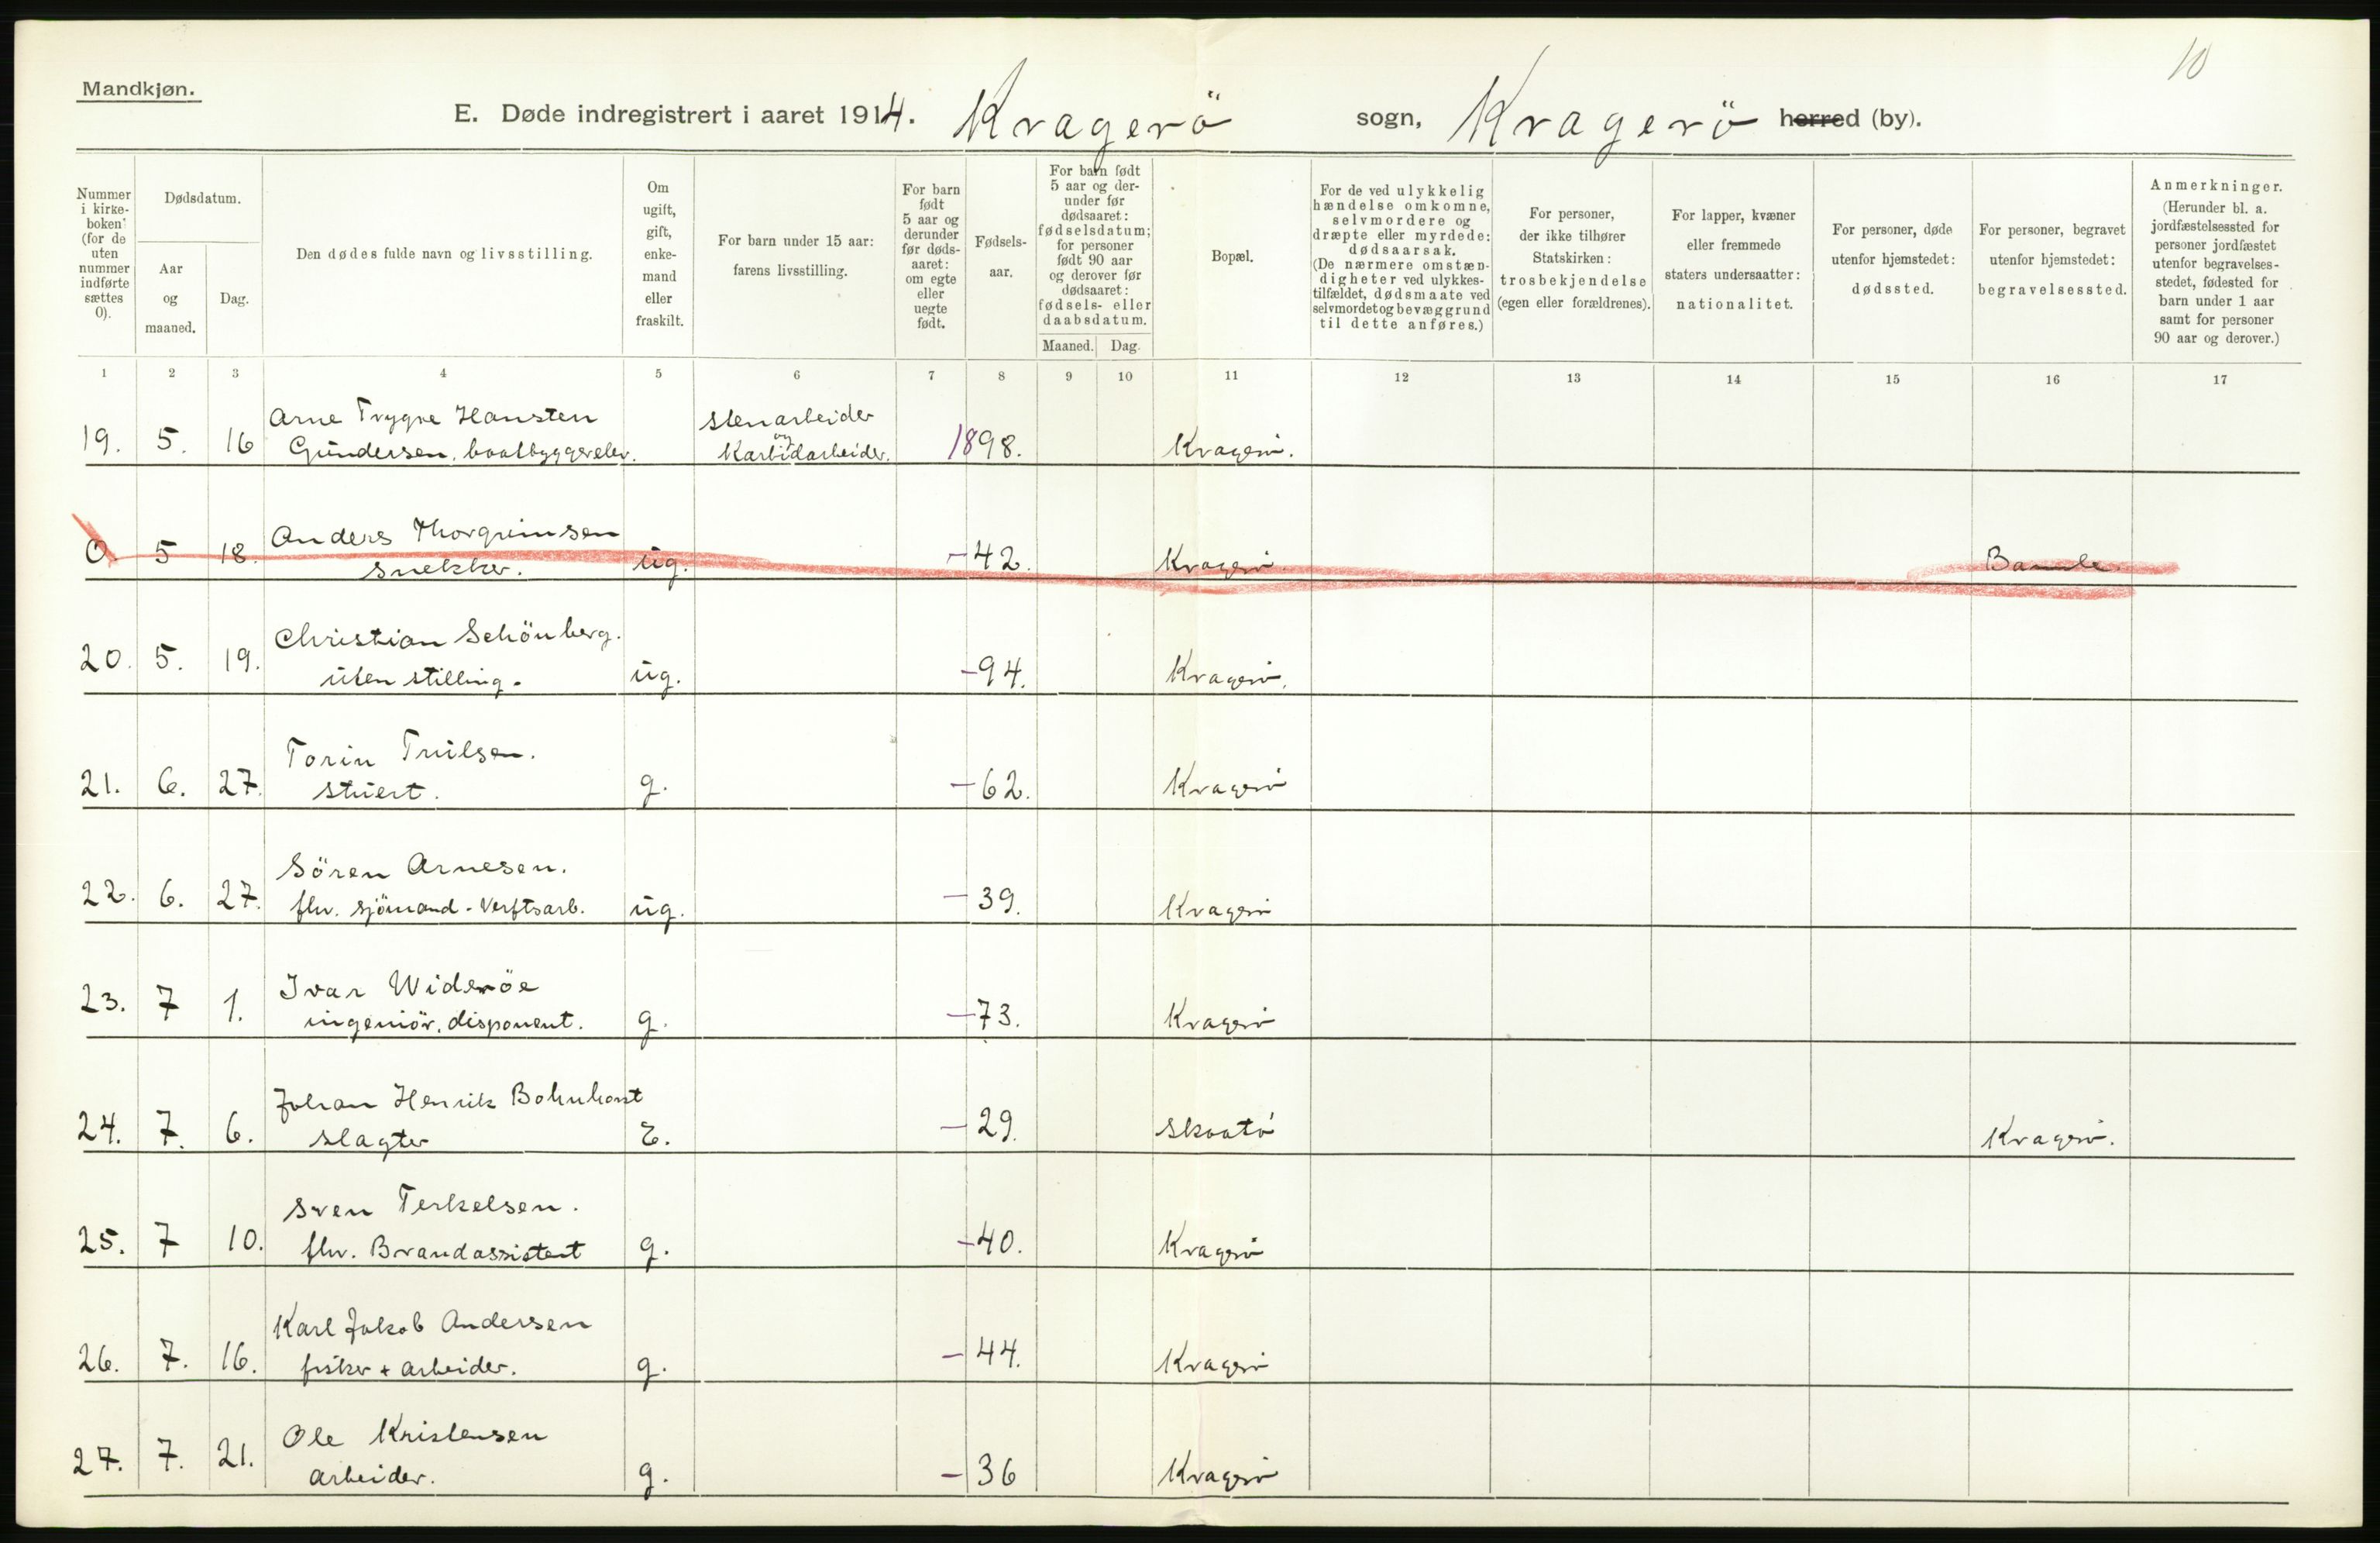 10
Mandkjøn.
E. Døde indregistrert i aaret 1914. Kragerö sogn, Kragerö herred (by).
Nummer i kirkeboken (for de uten nummer indførte sættes 0).
Dødsdatum.
Aar og maaned.
Dag.
Den dødes fulde navn og livsstilling.
Om ugift, gift, enkemand eller fraskilt.
For barn under 15 aar: farens livsstilling.
For barn født 5 aar og derunder før dødsaaret: om egte eller uegte født.
Fødselsaar.
For barn født 5 aar og derunder før dødsaaret: fødselsdatum; for personer født 90 aar og derover før dødsaaret: fødsels- eller daabsdatum.
Maaned. Dag.
Bopæl.
For de ved ulykkelig hændelse omkomne, selvmordere og dræpte eller myrdede: dødsaarsak. (De nærmere omstændigheter ved ulykkestilfældet, dødsmaate ved selvmordet og bevæggrund til dette anføres.)
For personer, der ikke tilhører Statskirken: trosbekjendelse (egen eller forældrenes).
For lapper, kvæner eller fremmede staters undersaatter: nationalitet.
For personer, døde utenfor hjemstedet: dødssted.
For personer, begravet utenfor hjemstedet: begravelsessted.
Anmerkninger. (Herunder bl. a. jordfæstelsessted for personer jordfæstet utenfor begravelsesstedet, fødested for barn under 1 aar samt for personer 90 aar og derover.)
1 2 3 4 5 6 7 8 9 10 11 12 13 14 15 16 17
Arne Trygve Hansten stenarbeider
19. 5. 16 Gundersen, baatbyggerelev. og Karbidarbeider. 1898. Kragerö.
Anders Thorgrimsen
0. 5 18. snekker. ug. -42. Kragerö Bamle.
Christian Schönberg.
20. 5. 19. uten stilling. ug. -94. Kragerö.
Torin Truilsen.
21. 6. 27. stuert. g. -62. Kragerö
Sören Arnesen.
22. 6. 27. fhv. sjömand - Verftsarb. ug. -39. Kragerö
Ivar Wideröe
23. 7 1. ingeniör, disponent. g. -73. Kragerö
Johan Henrik Bohnhorst
24. 7. 6. slagter E. -29. Skaatö Kragerö.
Sven Terkelsen.
25. 7 10. fhv. Brandassistent g. -40. Kragerö
Karl Jakob Andersen
26. 7. 16. fisker + arbeider. g. -44. Kragerö
Ole Kristensen
27. 7. 21. arbeider. g. -36 Kragerö